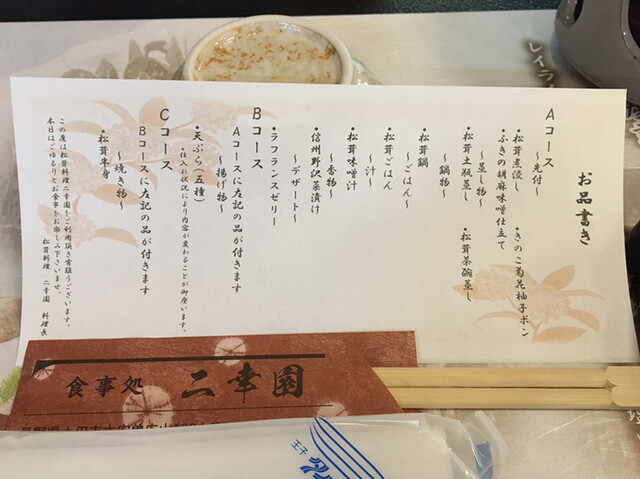 お品書き
Aコース
～先付～
・松茸煮浸し ・きのこ菊花柚子ポン
・ふきの胡麻味噌仕立て
～蒸し物～
・松茸土瓶蒸し ・松茸茶碗蒸し
～鍋物～
・松茸鍋
～ごはん～
・松茸ごはん
～汁～
・松茸味噌汁
～香物～
・信州野沢菜漬け
～デザート～
・ラフランスゼリー
Bコース
Aコースに左記の品が付きます
～揚げ物～
・天ぷら(五種)
・仕入れ状況により内容が変わることが御座います。
Cコース
Bコースに左記の品が付きます
～焼き物～
・松茸半身
この度は松茸料理二幸園をご利用頂き有難うございます。
本日はごゆるりとお食事をお楽しみ下さいませ。
松茸料理 二幸園 料理長
食事処 二幸園
王子
レイライ